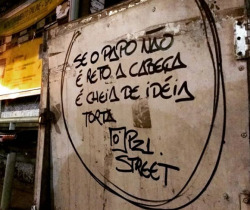 SE O PAPO NÃO
É RETO. A CABEÇA
É CHEIA DE IDÉIA
TORTA
STREET